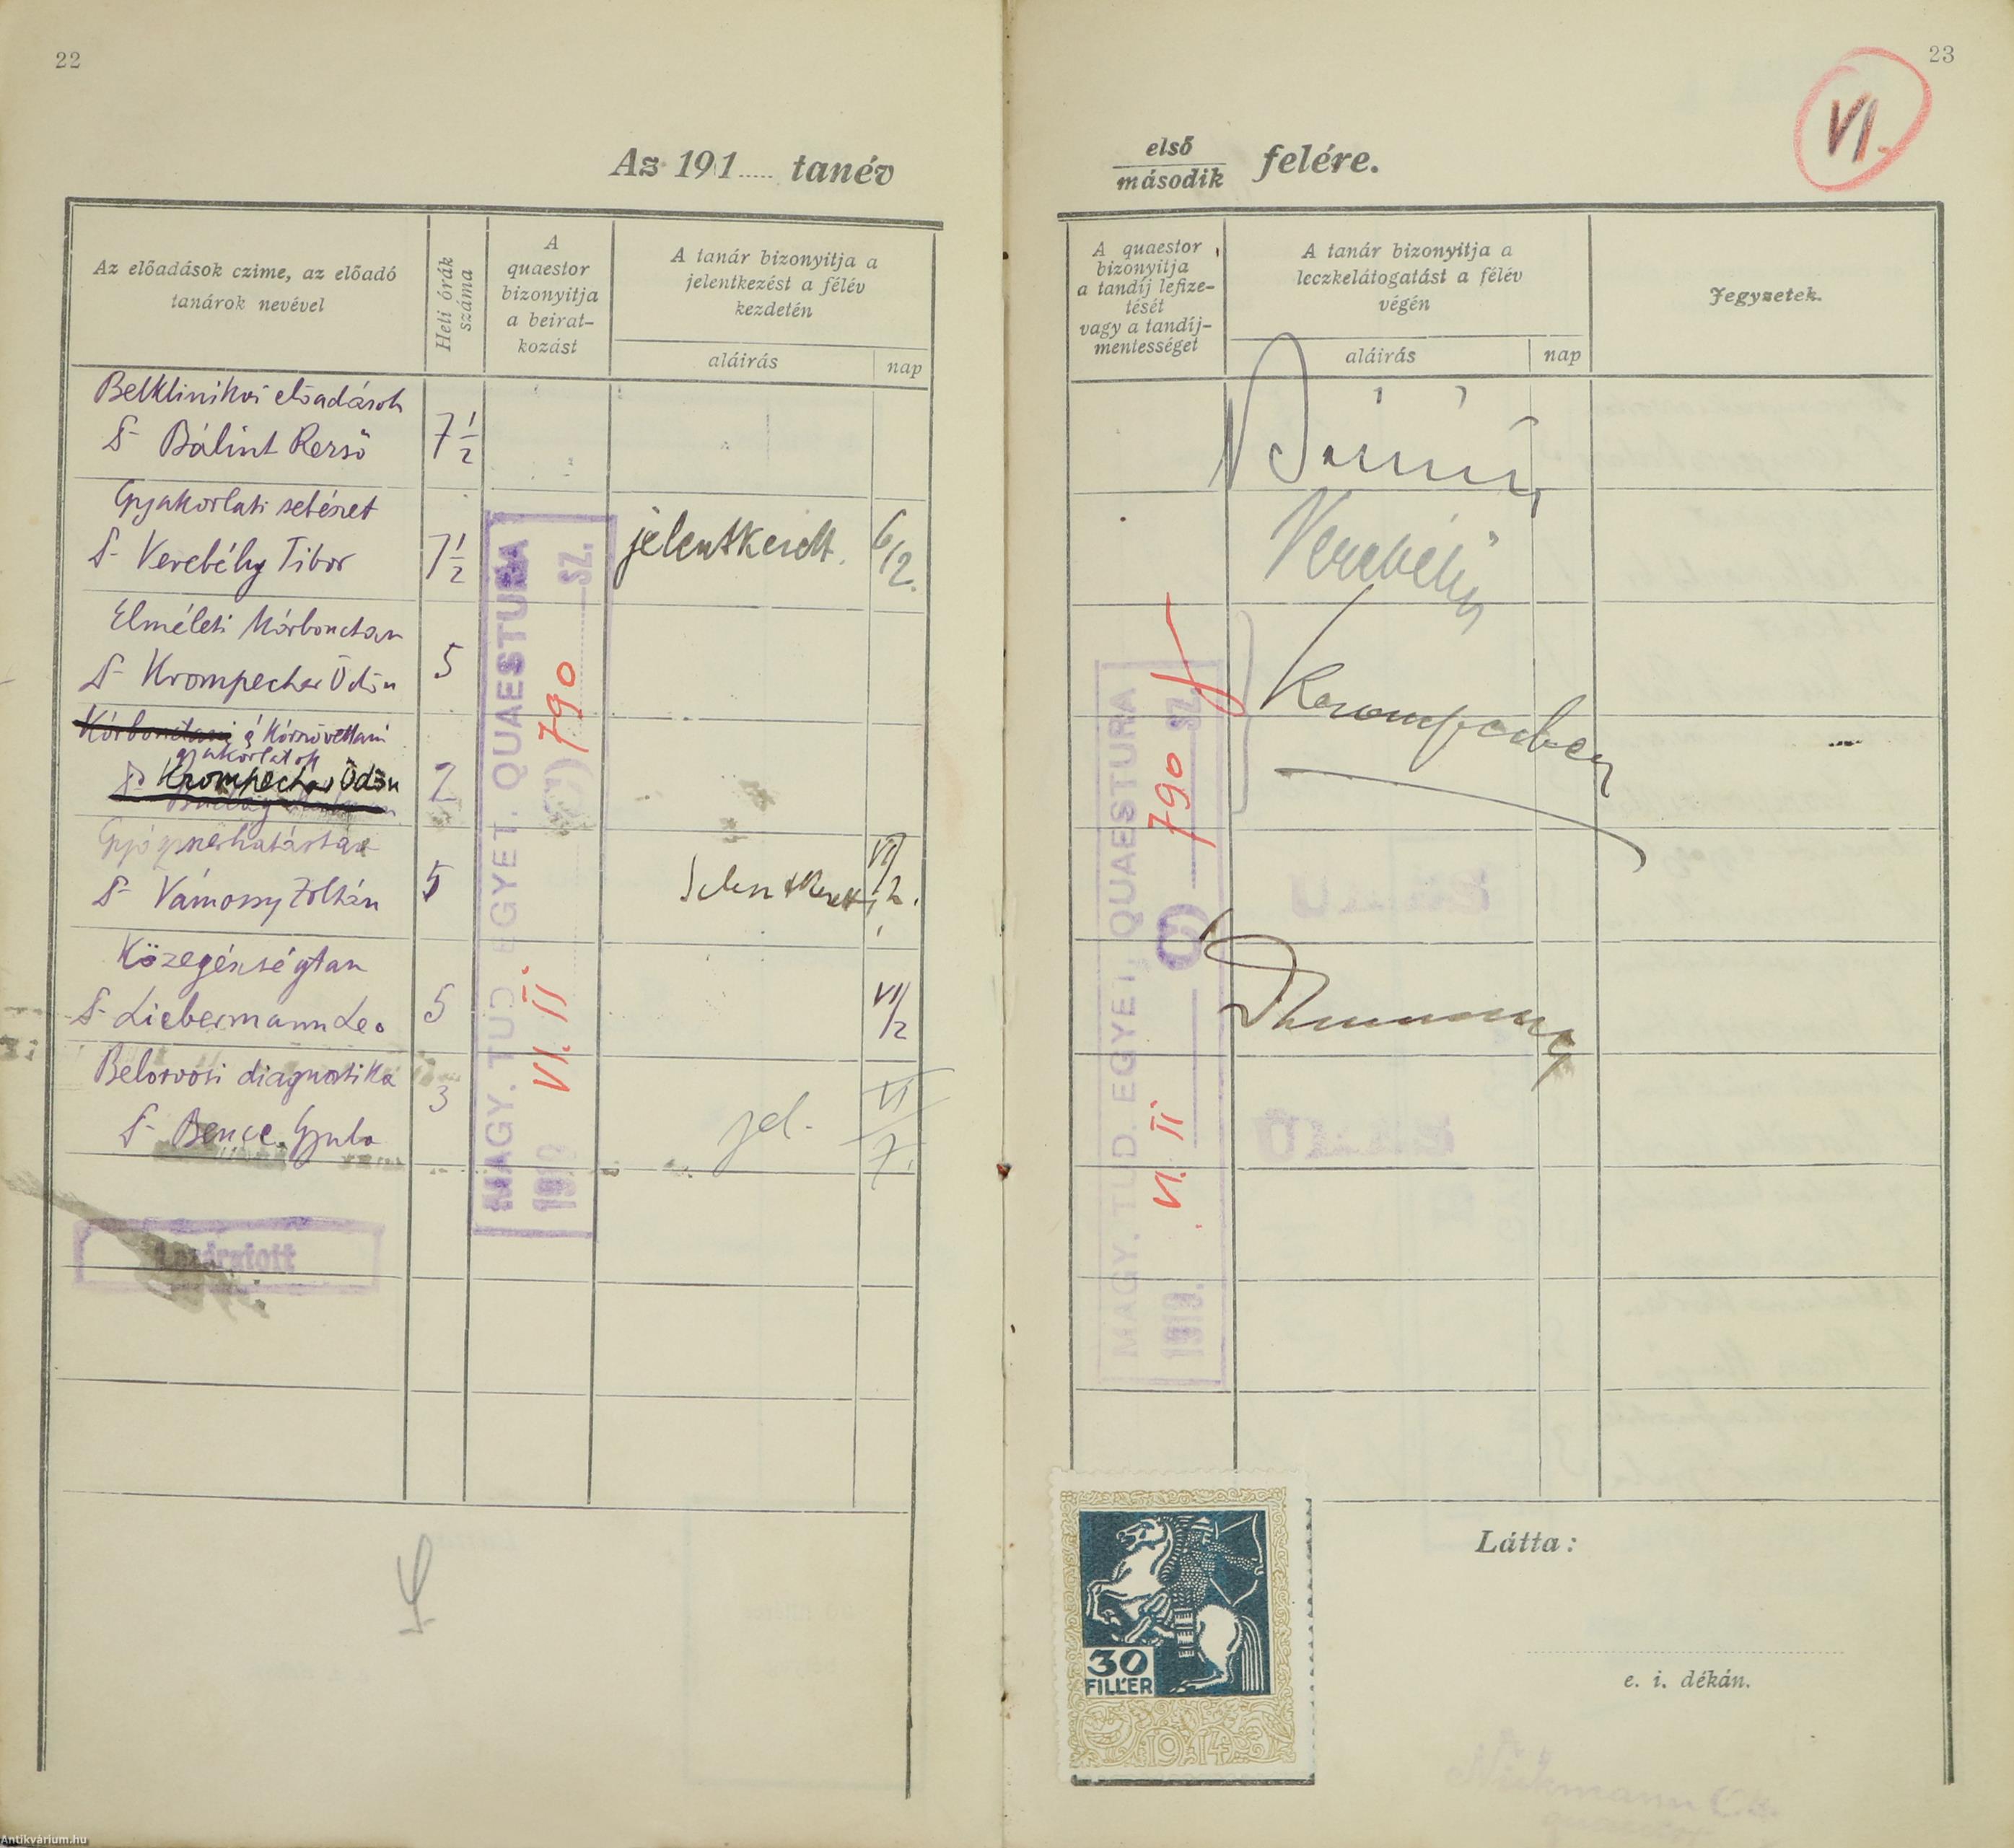 22
Az 191..... tanév
Az előadások czime, az előadó
tanárok nevével
Heti órák
száma
A
quaestor
bizonyitja
a beirat-
kozást
A tanár bizonyitja a
jelentkezést a félév
kezdetén
aláirás
nap
Belklinikai előadások
Dr Bálint Rezső
7 1/2
Gyakorlati sebészet
Dr Verebély Tibor
7 1/2
jelentkezett.
6/12.
Elméleti Kórbonctan
Dr Krompecher Ödön
5
Kórbonctani é Kórszövettani
gyakorlatok
Dr Krompecher Ödön
2
Gyógyszerhatástan
Dr Vámossy Zoltán
5
Jelentkezett
VI/2.
Közegészségtan
Dr Liebermann Leo
5
VI/2
Belorvosi diagnostika
Dr Bence Gyula
3
jel.
VI/7.
MAGY. TUD. EGYET. QUAESTURA
SZ.
790
VI. II.
Lezáratott
23
VI.
első
második
felére.
A quaestor
bizonyitja
a tandíj lefize-
tését
vagy a tandíj-
mentességet
A tanár bizonyitja a
leczkelátogatást a félév
végén
aláirás
nap
Jegyzetek.
Bálint
Verebély
Krompecher
Vámossy
MAGY. TUD. EGYET. QUAESTURA
1919.
SZ.
790
VI. II
30
FILLÉR
1914
Látta:
e. i. dékán.
Antikvárium.hu